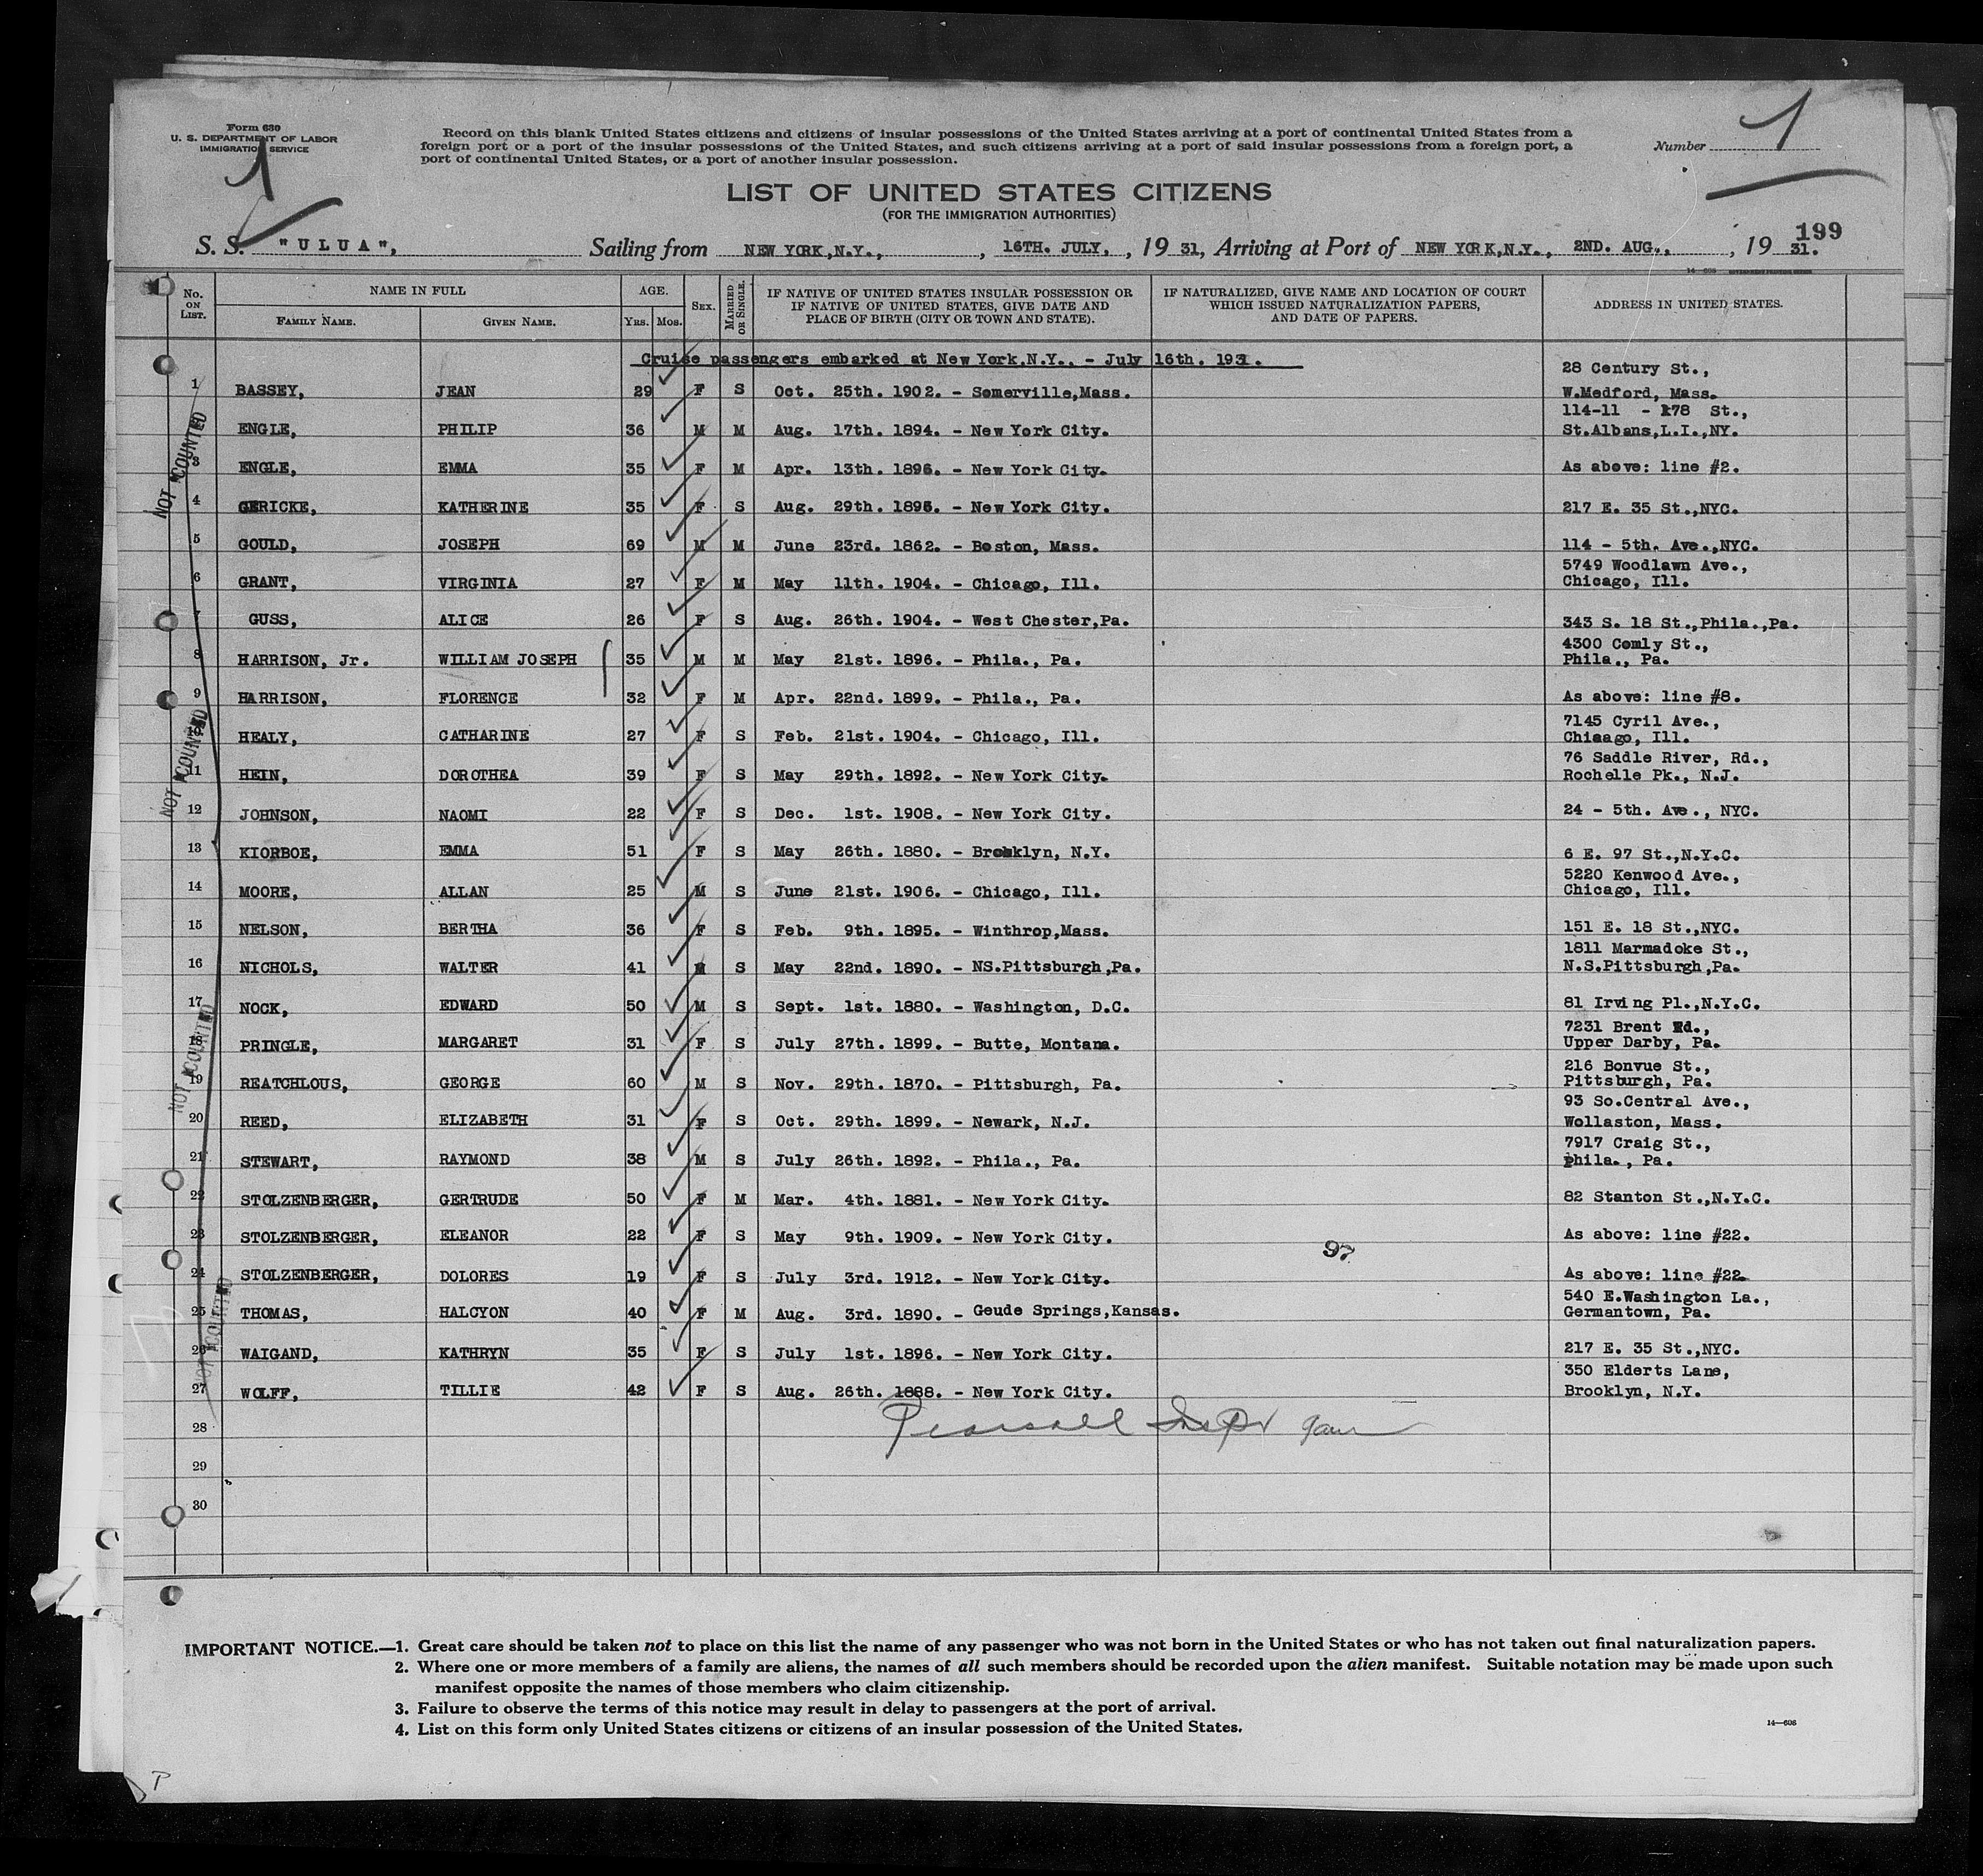 Form 630
U. S. DEPARTMENT OF LABOR
IMMIGRATION SERVICE
1
Record on this blank United States citizens and citizens of insular possessions of the United States arriving at a port of continental United States from a
foreign port or a port of the insular possessions of the United States, and such citizens arriving at a port of said insular possessions from a foreign port, a
port of continental United States, or a port of another insular possession.
Number 1
LIST OF UNITED STATES CITIZENS
(FOR THE IMMIGRATION AUTHORITIES)
199
S. S. "ULUA", Sailing from NEW YORK,N.Y., , 16TH. JULY, , 19 31, Arriving at Port of NEW YORK,N.Y., 2ND. AUG., , 19 31.
No. ON LIST. NAME IN FULL FAMILY NAME. GIVEN NAME. AGE. YRS. MOS. SEX. MARRIED OR SINGLE. IF NATIVE OF UNITED STATES INSULAR POSSESSION OR IF NATIVE OF UNITED STATES, GIVE DATE AND PLACE OF BIRTH (CITY OR TOWN AND STATE). IF NATURALIZED, GIVE NAME AND LOCATION OF COURT WHICH ISSUED NATURALIZATION PAPERS, AND DATE OF PAPERS. ADDRESS IN UNITED STATES.
Cruise passengers embarked at New York,N.Y., - July 16th. 1931.
28 Century St.,
1 BASSEY, JEAN 29 F S Oct. 25th. 1902. - Somerville,Mass. W.Medford, Mass.
114-11 - 178 St.,
ENGLE, PHILIP 36 M M Aug. 17th. 1894. - New York City. St.Albans,L.I.,NY.
3 ENGLE, EMMA 35 F M Apr. 13th. 1896. - New York City. As above: line #2.
4 GERICKE, KATHERINE 35 F S Aug. 29th. 1895. - New York City. 217 E. 35 St.,NYC.
5 GOULD, JOSEPH 69 M M June 23rd. 1862. - Boston, Mass. 114 - 5th. Ave.,NYC.
5749 Woodlawn Ave.,
6 GRANT, VIRGINIA 27 F M May 11th. 1904. - Chicago, Ill. Chicago, Ill.
7 GUSS, ALICE 26 F S Aug. 26th. 1904. - West Chester,Pa. 343 S. 18 St.,Phila.,Pa.
4300 Comly St.,
8 HARRISON, Jr. WILLIAM JOSEPH 35 M M May 21st. 1896. - Phila., Pa. Phila., Pa.
9 HARRISON, FLORENCE 32 F M Apr. 22nd. 1899. - Phila., Pa. As above: line #8.
7145 Cyril Ave.,
10 HEALY, CATHARINE 27 F S Feb. 21st. 1904. - Chicago, Ill. Chiaago, Ill.
76 Saddle River, Rd.,
11 HEIN, DOROTHEA 39 F S May 29th. 1892. - New York City. Rochelle Pk., N.J.
12 JOHNSON, NAOMI 22 F S Dec. 1st. 1908. - New York City. 24 - 5th. Ave., NYC.
13 KIORBOE, EMMA 51 F S May 26th. 1880. - Brooklyn, N.Y. 6 E. 97 St.,N.Y.C.
5220 Kenwood Ave.,
14 MOORE, ALLAN 25 M S June 21st. 1906. - Chicago, Ill. Chicago, Ill.
15 NELSON, BERTHA 36 F S Feb. 9th. 1895. - Winthrop,Mass. 151 E. 18 St.,NYC.
1811 Marmadoke St.,
16 NICHOLS, WALTER 41 M S May 22nd. 1890. - NS.Pittsburgh,Pa. N.S.Pittsburgh,Pa.
17 NOCK, EDWARD 50 M S Sept. 1st. 1880. - Washington, D.C. 81 Irving Pl.,N.Y.C.
7231 Brent Rd.,
18 PRINGLE, MARGARET 31 F S July 27th. 1899. - Butte, Montana. Upper Darby, Pa.
216 Bonvue St.,
19 REATCHLOUS, GEORGE 60 M S Nov. 29th. 1870. - Pittsburgh, Pa. Pittsburgh, Pa.
93 So.Central Ave.,
20 REED, ELIZABETH 31 F S Oct. 29th. 1899. - Newark, N.J. Wollaston, Mass.
7917 Craig St.,
21 STEWART, RAYMOND 38 M S July 26th. 1892. - Phila., Pa. Phila., Pa.
22 STOLZENBERGER, GERTRUDE 50 F M Mar. 4th. 1881. - New York City. 82 Stanton St.,N.Y.C.
23 STOLZENBERGER, ELEANOR 22 F S May 9th. 1909. - New York City. As above: line #22.
97
24 STOLZENBERGER, DOLORES 19 F S July 3rd. 1912. - New York City. As above: line #22.
540 E.Washington La.,
25 THOMAS, HALCYON 40 F M Aug. 3rd. 1890. - Geude Springs,Kansas. Germantown, Pa.
26 WAIGAND, KATHRYN 35 F S July 1st. 1896. - New York City. 217 E. 35 St.,NYC.
350 Elderts Lane,
27 WOLFF, TILLIE 42 F S Aug. 26th. 1888. - New York City. Brooklyn, N.Y.
28 Pearsall Inspr
29
30
NOT COUNTED
NOT COUNTED
NOT COUNTED
NOT COUNTED
IMPORTANT NOTICE.—1. Great care should be taken not to place on this list the name of any passenger who was not born in the United States or who has not taken out final naturalization papers.
2. Where one or more members of a family are aliens, the names of all such members should be recorded upon the alien manifest. Suitable notation may be made upon such
manifest opposite the names of those members who claim citizenship.
3. Failure to observe the terms of this notice may result in delay to passengers at the port of arrival.
4. List on this form only United States citizens or citizens of an insular possession of the United States.
14—608
P